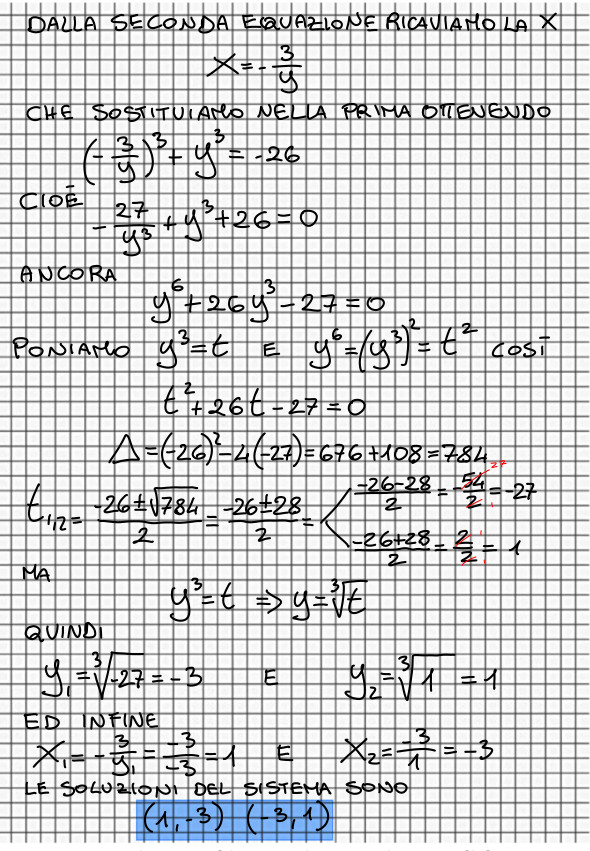 DALLA SECONDA EQUAZIONE RICAVIAMO LA X
X = -3/y
CHE SOSTITUIAMO NELLA PRIMA OTTENENDO
(-3/y)³ + y³ = -26
CIOÈ
-27/y³ + y³ + 26 = 0
ANCORA
y⁶ + 26y³ - 27 = 0
PONIAMO y³ = t E y⁶ = (y³)² = t² COSÌ
t² + 26t - 27 = 0
Δ = (-26)² - 4(-27) = 676 + 108 = 784
t₁,₂ = (-26 ± √784)/2 = (-26 ± 28)/2 =
(-26 - 28)/2 = -54/2 = -27
27
1
(-26 + 28)/2 = 2/2 = 1
1
1
MA
y³ = t => y = ∛t
QUINDI
y₁ = ∛-27 = -3 E y₂ = ∛1 = 1
ED INFINE
X₁ = -3/y₁ = -3/-3 = 1 E X₂ = -3/1 = -3
LE SOLUZIONI DEL SISTEMA SONO
(1, -3) (-3, 1)